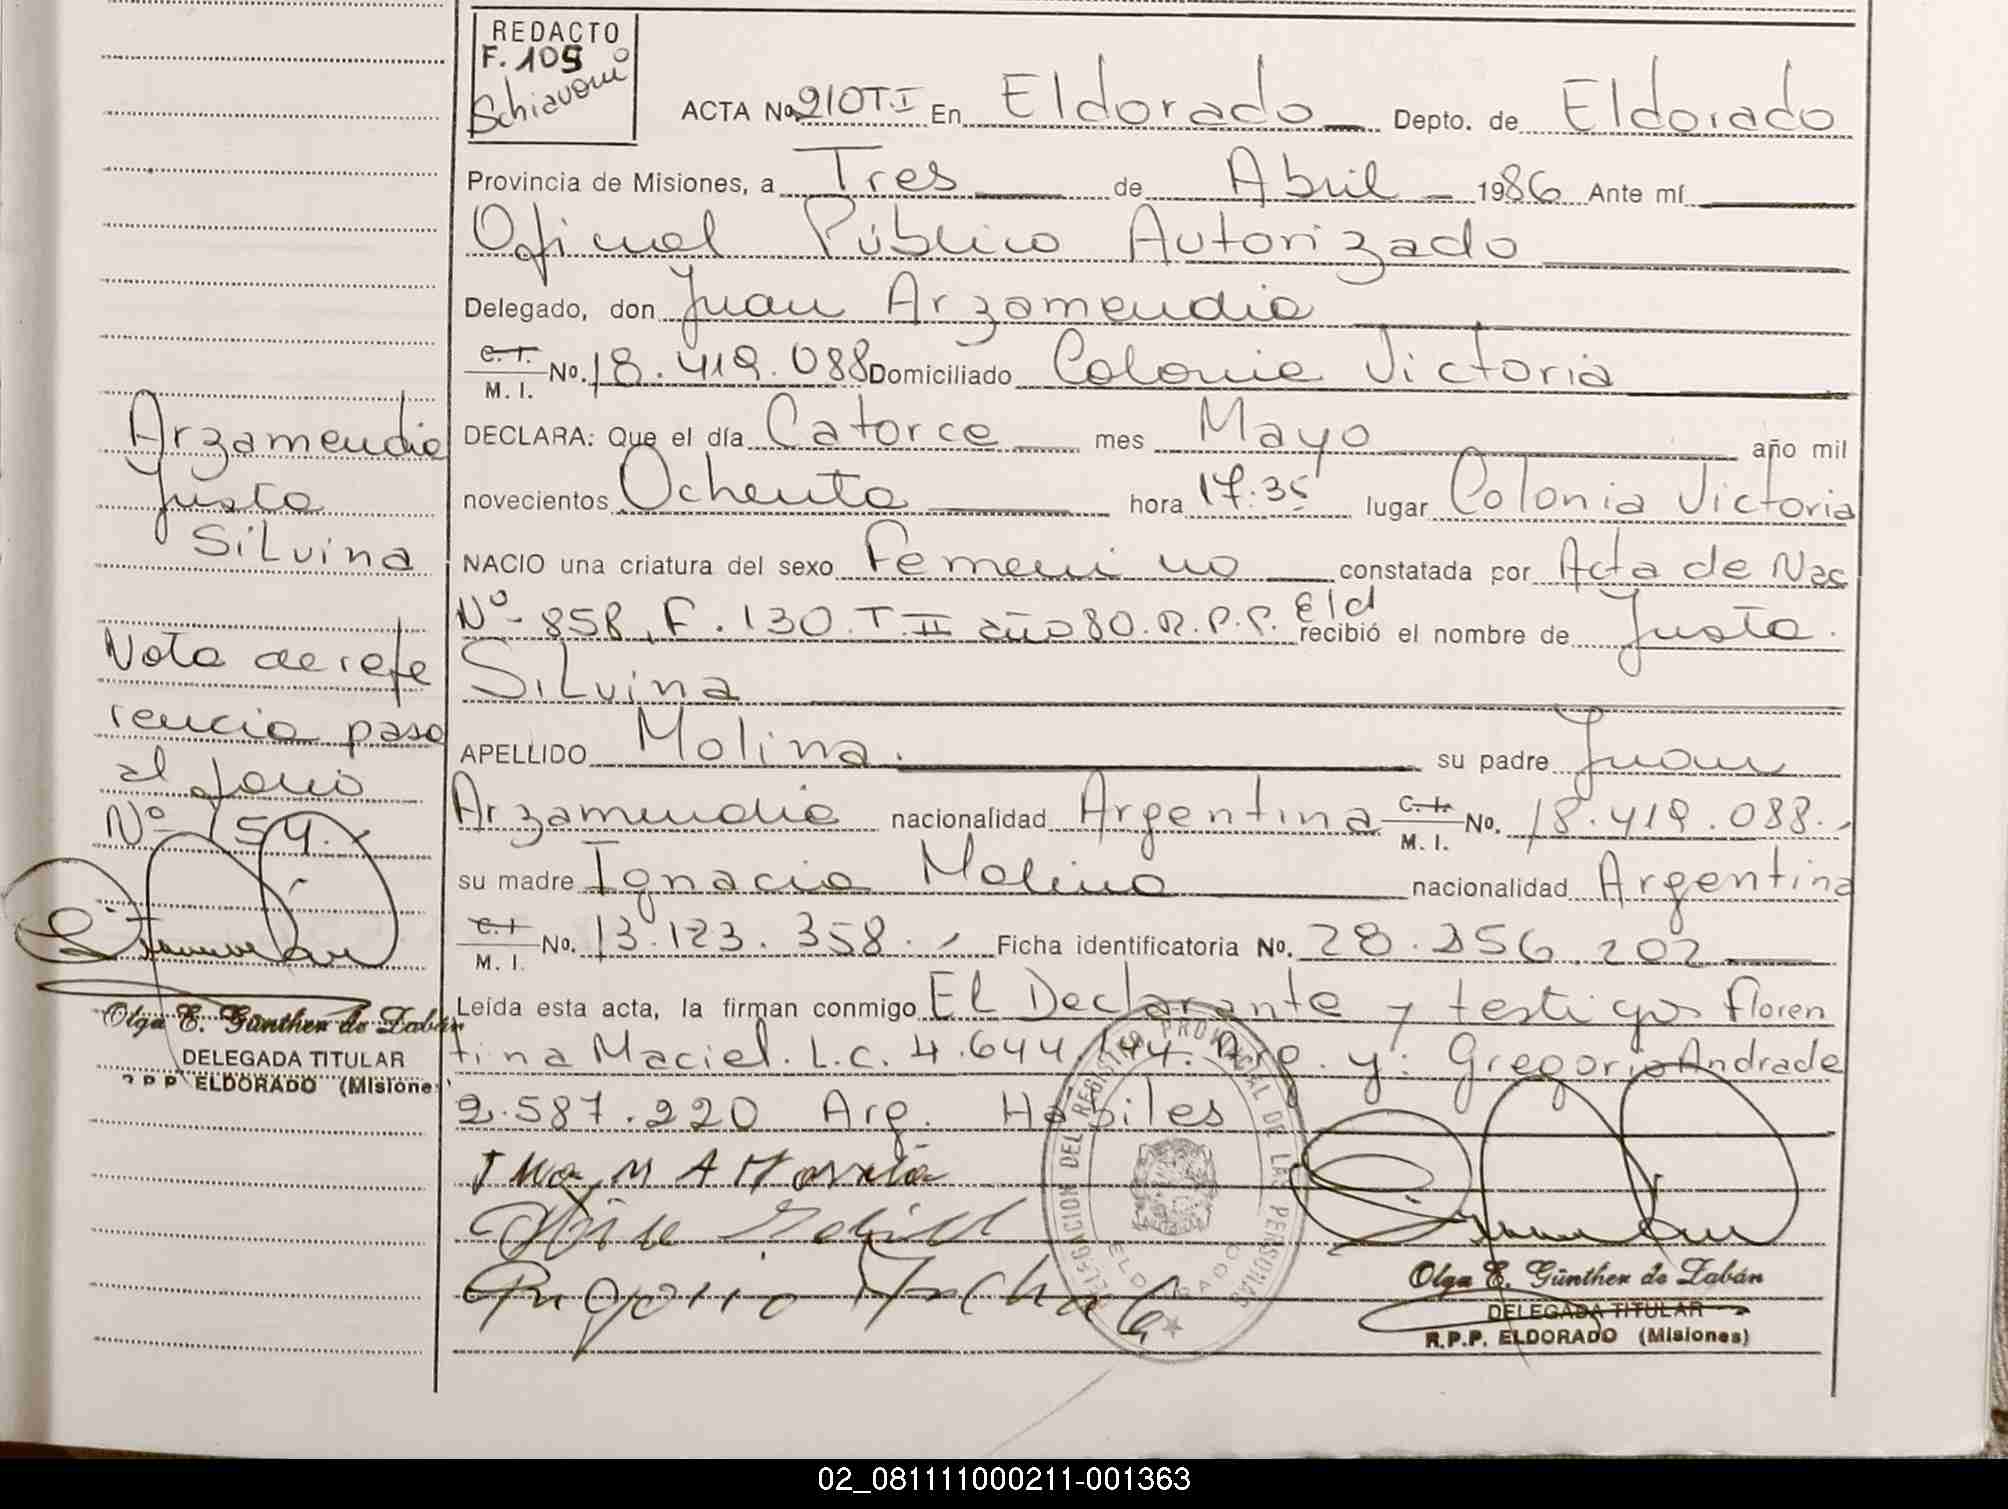 REDACTO
F. 109
Schiavoni
ACTA No. 210 T.I En Eldorado Depto. de Eldorado
Provincia de Misiones, a Tres de Abril 1986 Ante mí
Oficial Público Autorizado
Delegado, don Juan Arzamendia
C. I. M. I. No. 18.419.088 Domiciliado Colonia Victoria
DECLARA: Que el día Catorce mes Mayo año mil
novecientos Ochenta hora 17.35 lugar Colonia Victoria
NACIO una criatura del sexo Femenino constatada por Acta de Nac
Nº 858, F. 130. T. II año 80. R. P. P. Eld recibió el nombre de Justa.
Silvina
APELLIDO Molina. su padre Juan
Arzamendia nacionalidad Argentina C. I. M. I. No. 18.419.088.
su madre Ignacia Molina nacionalidad Argentina
C. I. M. I. No. 13.123.358. Ficha identificatoria No. 28.256.202
Leída esta acta, la firman conmigo El Declarante y testigos Floren
tina Maciel. L.C. 4.644.144. Arg. y: Gregorio Andrade
2.587.220 Arg. Habiles
DELEGACION DEL REGISTRO PROVINCIAL DE LAS PERSONAS
ELDORADO
Olga E. Günther de Zabán
DELEGADA TITULAR
R.P.P. ELDORADO (Misiones)
Arzamendia
Justa
Silvina
Nota de refe
rencia pasa
al folio
Nº 154.
Olga E. Günther de Zabán
DELEGADA TITULAR
R.P.P. ELDORADO (Misione
02_081111000211-001363